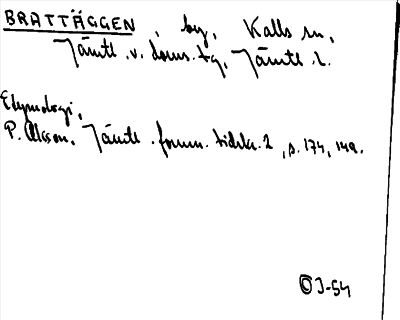 BRATTÄGGEN, by, Kalls sn,
Jämtl. v. doms. tg, Jämtl. l.
Etymologi,
P. Olsson, Jämtl. fornm. tidskr. 2, s. 174,
© J-54